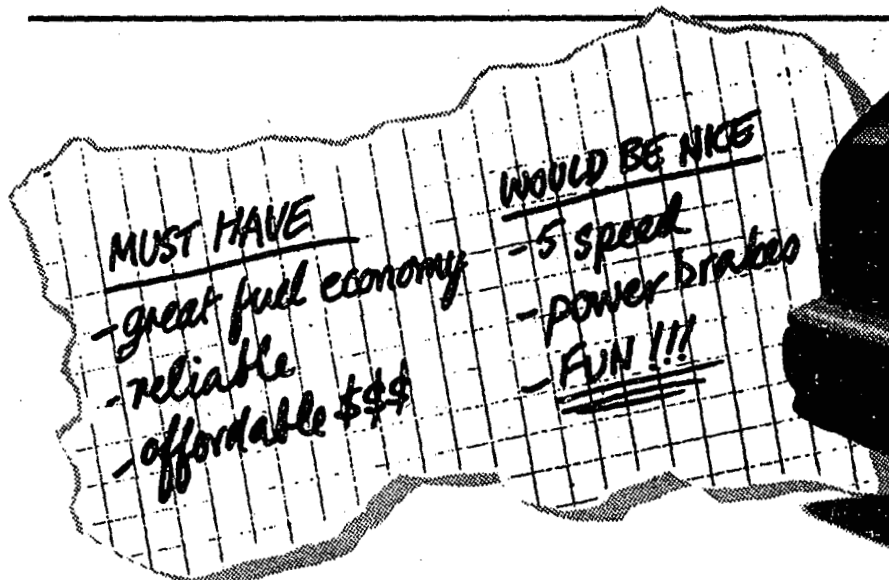 MUST HAVE
- great fuel economy
- reliable
- affordable $$$
WOULD BE NICE
- 5 speed
- power brakes
- FUN!!!